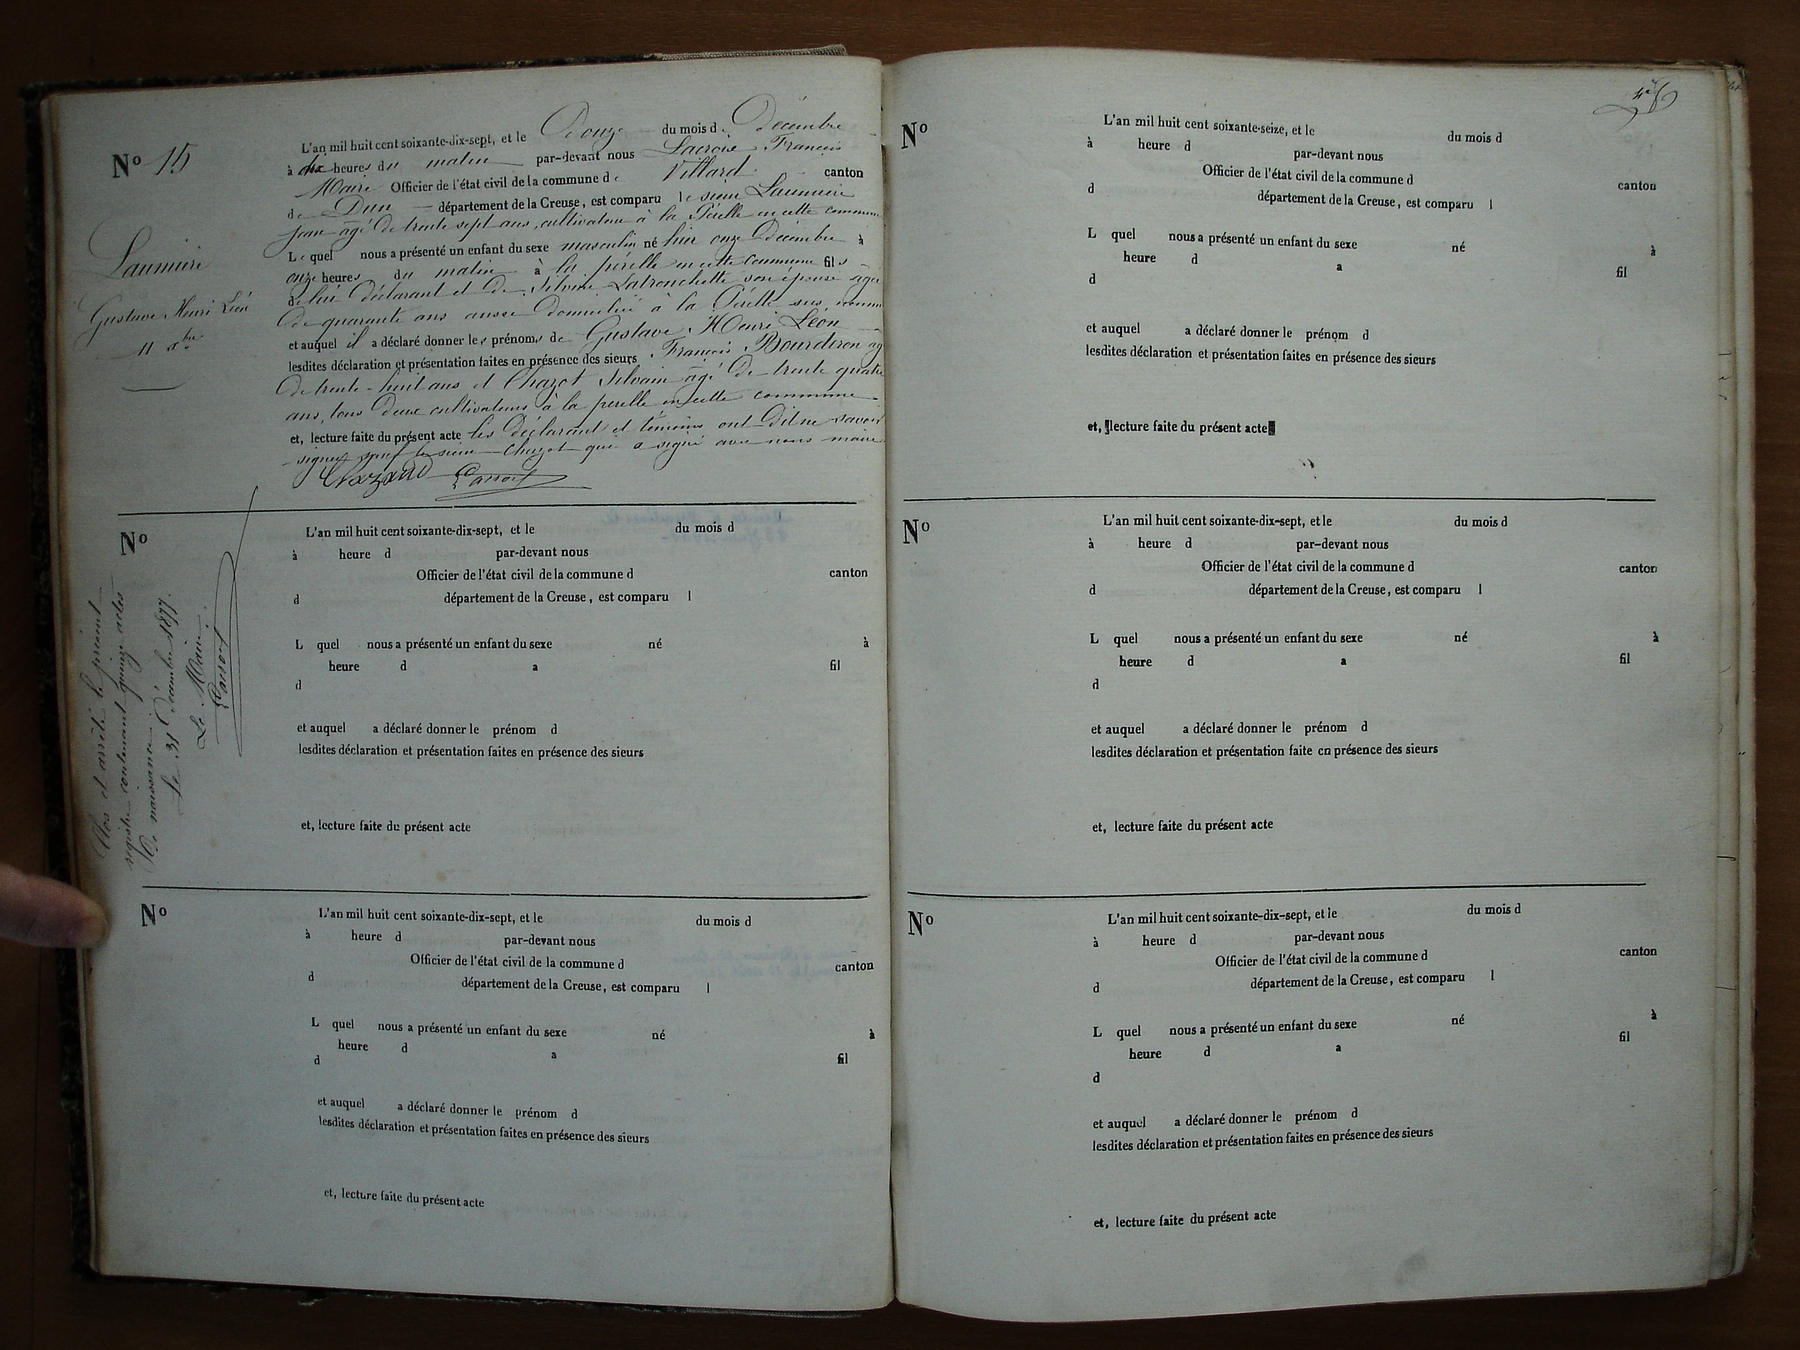 Nº 15
Laumière
Gustave Henri Léon
11 Xbre
L'an mil huit cent soixante-dix-sept, et le Douze du mois de Décembre
à dix heures du matin par-devant nous Lacroix François
Maire Officier de l'état civil de la commune de Villard canton
de Dun département de la Creuse, est comparu le sieur Laumière
jean âgé de trente sept ans, cultivateur à la Pérelle en cette commune
Lequel nous a présenté un enfant du sexe masculin né hier onze Décembre à
onze heures du matin à la pérelle en cette commune fils
de lui déclarant et de Silvine Latronchette son épouse âgée
de quarante ans aussi domiciliée à la Pérelle sus
et auquel il a déclaré donner les prénoms de Gustave Henri Léon
lesdites déclaration et présentation faites en présence des sieurs François Bourderon âgé
de trente-huit ans et Chazot Silvain âgé de trente quatre
ans, tous deux cultivateurs à la perelle en cette commune
et, lecture faite du présent acte les déclarant et témoins ont dit ne savoir
signer sauf le sieur Chazot qui a signé avec nous maire
Nº
L'an mil huit cent soixante-dix-sept, et le du mois d
à heure d par-devant nous
Officier de l'état civil de la commune d canton
d département de la Creuse, est comparu l
L quel nous a présenté un enfant du sexe né à
heure d a fil
d
et auquel a déclaré donner le prénom d
lesdites déclaration et présentation faites en présence des sieurs
et, lecture faite du présent acte
Clos et arrêté le présent
registre contenant quinze actes
de naissance
Le 31 Décembre 1877.
Le Maire
Nº
L'an mil huit cent soixante-dix-sept, et le du mois d
à heure d par-devant nous
Officier de l'état civil de la commune d canton
d département de la Creuse, est comparu l
L quel nous a présenté un enfant du sexe né à
heure d a fil
d
et auquel a déclaré donner le prénom d
lesdites déclaration et présentation faites en présence des sieurs
et, lecture faite du présent acte
Nº
L'an mil huit cent soixante-seize, et le du mois d
à heure d par-devant nous
Officier de l'état civil de la commune d canton
d département de la Creuse, est comparu l
L quel nous a présenté un enfant du sexe né à
heure d a fil
d
et auquel a déclaré donner le prénom d
lesdites déclaration et présentation faites en présence des sieurs
et, lecture faite du présent acte
Nº
L'an mil huit cent soixante-dix-sept, et le du mois d
à heure d par-devant nous
Officier de l'état civil de la commune d canton
d département de la Creuse, est comparu l
L quel nous a présenté un enfant du sexe né à
heure d a fil
d
et auquel a déclaré donner le prénom d
lesdites déclaration et présentation faite en présence des sieurs
et, lecture faite du présent acte
Nº
L'an mil huit cent soixante-dix-sept, et le du mois d
à heure d par-devant nous
Officier de l'état civil de la commune d canton
d département de la Creuse, est comparu l
L quel nous a présenté un enfant du sexe né à
heure d a fil
d
et auquel a déclaré donner le prénom d
lesdites déclaration et présentation faites en présence des sieurs
et, lecture faite du présent acte